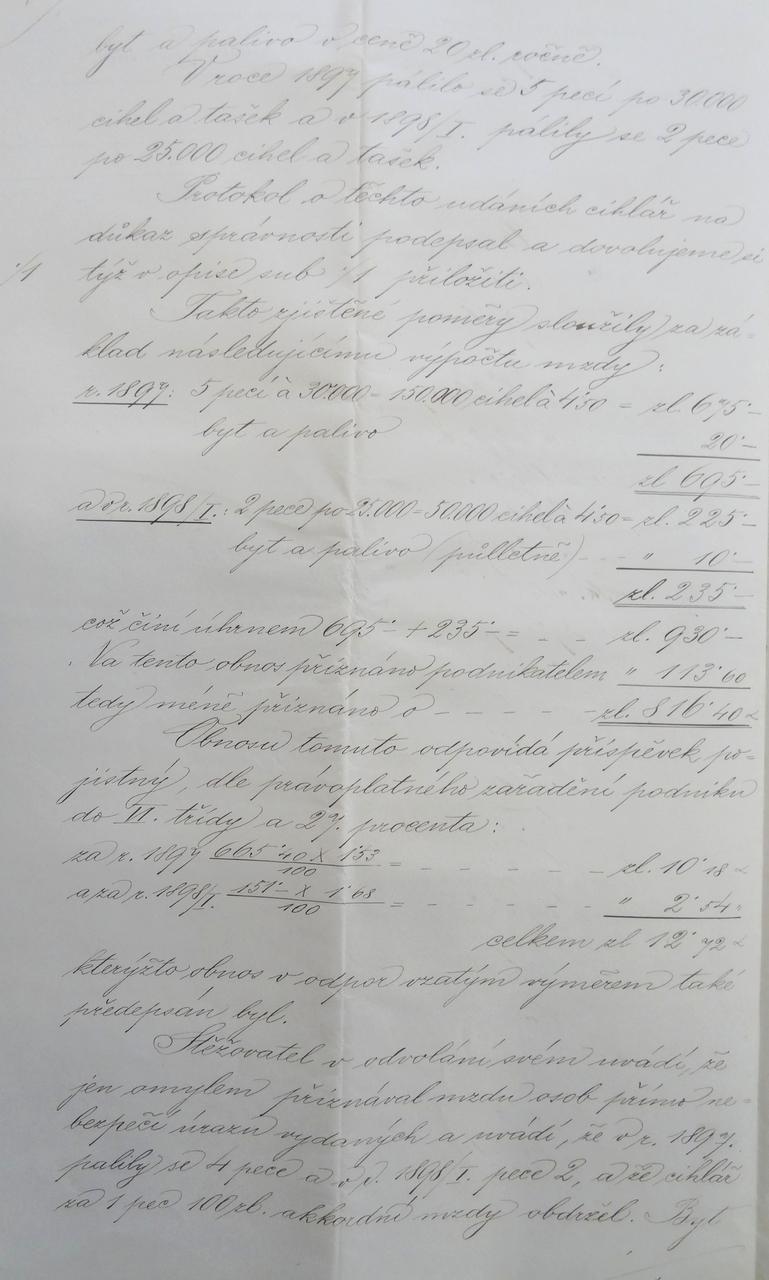 byt a palivo v ceně 20 zl. ročně.
V roce 1897 pálilo se 5 pecí po 30.000
cihel a tašek a v 1898/I. pálily se 2 pece
po 25.000 cihel a tašek.
Protokol o těchto udáních cihlář na
důkaz správnosti podepsal a dovolujeme si
·/1 týž v opise sub ·/1 přiložiti.
Takto zjištěné poměry sloužily za zá=
klad následujícímu výpočtu mzdy:
r. 1897: 5 pecí à 30.000 = 150.000 cihel à 4·50 = zl. 675·–
byt a palivo 20·–
zl 695·–
a v r. 1898/I.: 2 pece po 25.000 = 50.000 cihel à 4·50 = zl. 225·–
byt a palivo (půlletně) – – " 10·–
zl. 235·–
což činí úhrnem 695·– + 235·– = – – zl. 930·–
Na tento obnos přiznáno podnikatelem " 113·60
tedy méně přiznáno o – – – – – zl. 816·40
Obnosu tomuto odpovídá příspěvek po=
jistný, dle právoplatného zařadění podniku
do VI. třídy a 27. procenta:
za r. 1897 665·40 x 1·53 / 100 = – – – – – zl. 10·18
a za r. 1898/I. 151·– x 1·68 / 100 = – – – – – " 2·54
celkem zl 12·72
kterýžto obnos v odpor vzatým výměrem také
předepsán byl.
Stěžovatel v odvolání svém uvádí, že
jen omylem přiznával mzdu osob přímo ne=
bezpečí úrazu vydaných a uvádí, že v r. 1897.
pálily se 4 pece a v r. 1898/I. pece 2, a že cihlář
za 1 pec 100 zl. akkordní mzdy obdržel. Byt